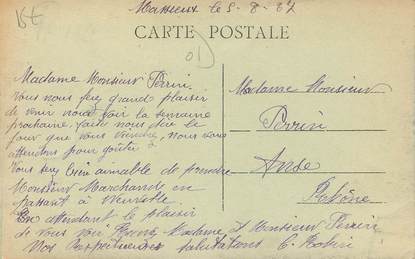 Massieux le 5-8-37
CARTE POSTALE
Madame Monsieur Perrin
Vous nous fey grand plaisir
de venir nous voir la semaine
prochaine, faite nous dire le
jour que vous viendré, nous vous
attendons pour goûter
Vous sey bien aimable de prendre
Monsieur Marchand en
passant à
En attendant le plaisir
de vous voir Madame et Monsieur Perrin
Nos Respectueuses salutations C. Robin
Madame Monsieur
Perrin
Anse
Rhône